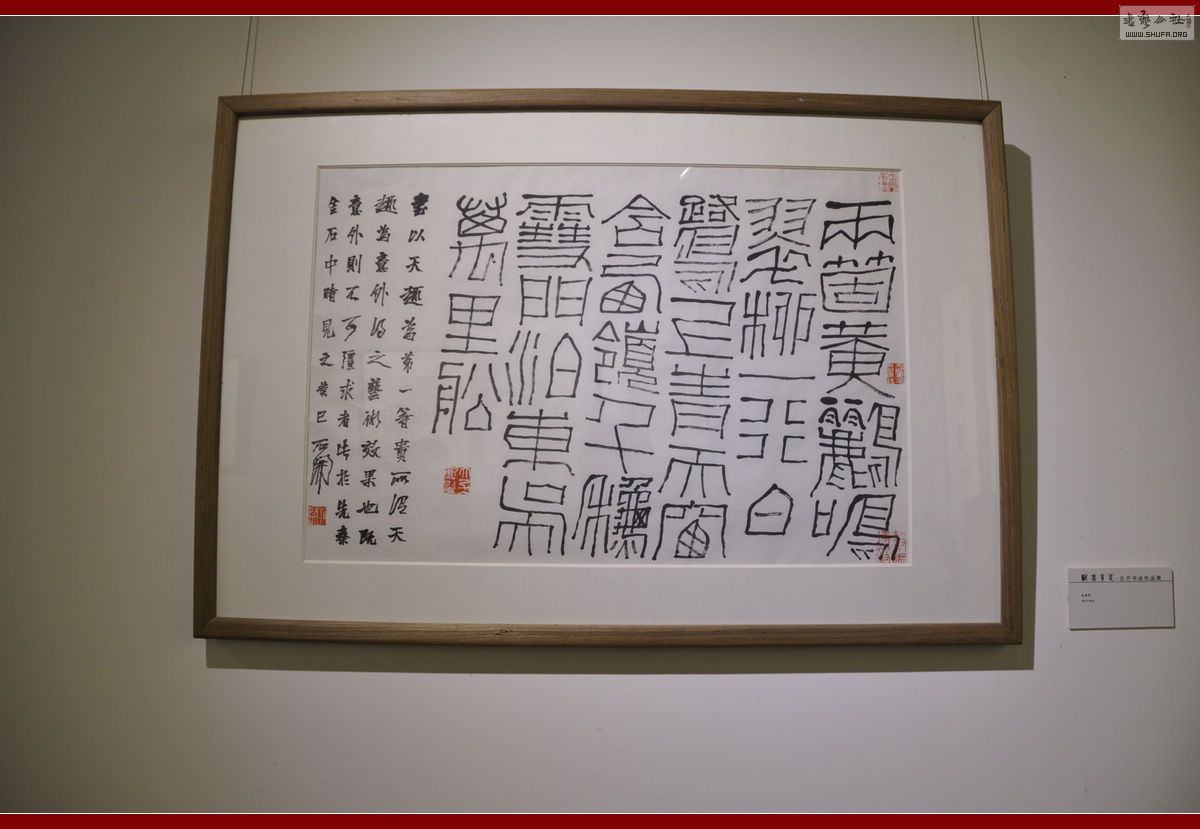 兩箇黃鸝鳴
翠柳一行白
鷺上青天窗
含西嶺千秋
雪門泊東吳
萬里船
書以天趣為第一等貴所謂天
趣為意外得之藝術效果也既
意外則不可彊求者出於先秦
金石中時見之癸巳石開
WWW.SHUFA.ORG